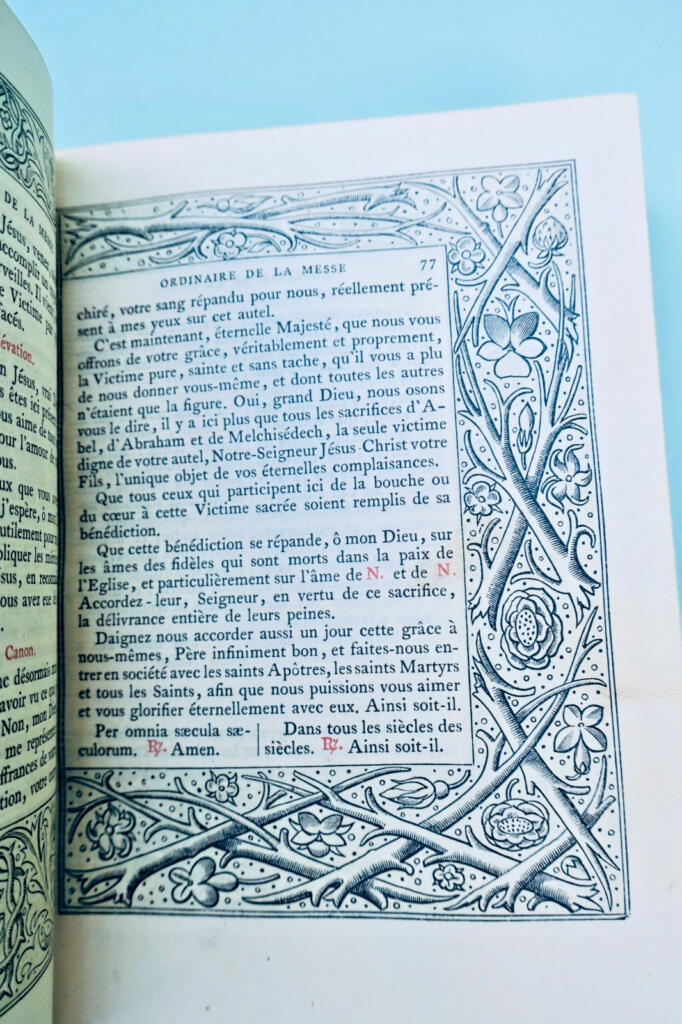 DE LA MESSE
Jésus, venez
accomplir un
Victime par
évation.
Jésus, vrai
êtes ici
aime de
pour l'amour de
que vous
j'espère, ô
utilement pour
les
en
vous avez
Canon.
désormais
avoir vu ce
Non, mon
me
de
votre
ORDINAIRE DE LA MESSE 77
chiré, votre sang répandu pour nous, réellement pré-
sent à mes yeux sur cet autel.
C'est maintenant, éternelle Majesté, que nous vous
offrons de votre grâce, véritablement et proprement,
la Victime pure, sainte et sans tache, qu'il vous a plu
de nous donner vous-même, et dont toutes les autres
n'étaient que la figure. Oui, grand Dieu, nous osons
vous le dire, il y a ici plus que tous les sacrifices d'A-
bel, d'Abraham et de Melchisédech, la seule victime
digne de votre autel, Notre-Seigneur Jésus-Christ votre
Fils, l'unique objet de vos éternelles complaisances.
Que tous ceux qui participent ici de la bouche ou
du cœur à cette Victime sacrée soient remplis de sa
bénédiction.
Que cette bénédiction se répande, ô mon Dieu, sur
les âmes des fidèles qui sont morts dans la paix de
l'Eglise, et particulièrement sur l'âme de N. et de N.
Accordez-leur, Seigneur, en vertu de ce sacrifice,
la délivrance entière de leurs peines.
Daignez nous accorder aussi un jour cette grâce à
nous-mêmes, Père infiniment bon, et faites-nous en-
trer en société avec les saints Apôtres, les saints Martyrs
et tous les Saints, afin que nous puissions vous aimer
et vous glorifier éternellement avec eux. Ainsi soit-il.
Per omnia sæcula sæ-
culorum. ℟. Amen.
Dans tous les siècles des
siècles. ℟. Ainsi soit-il.